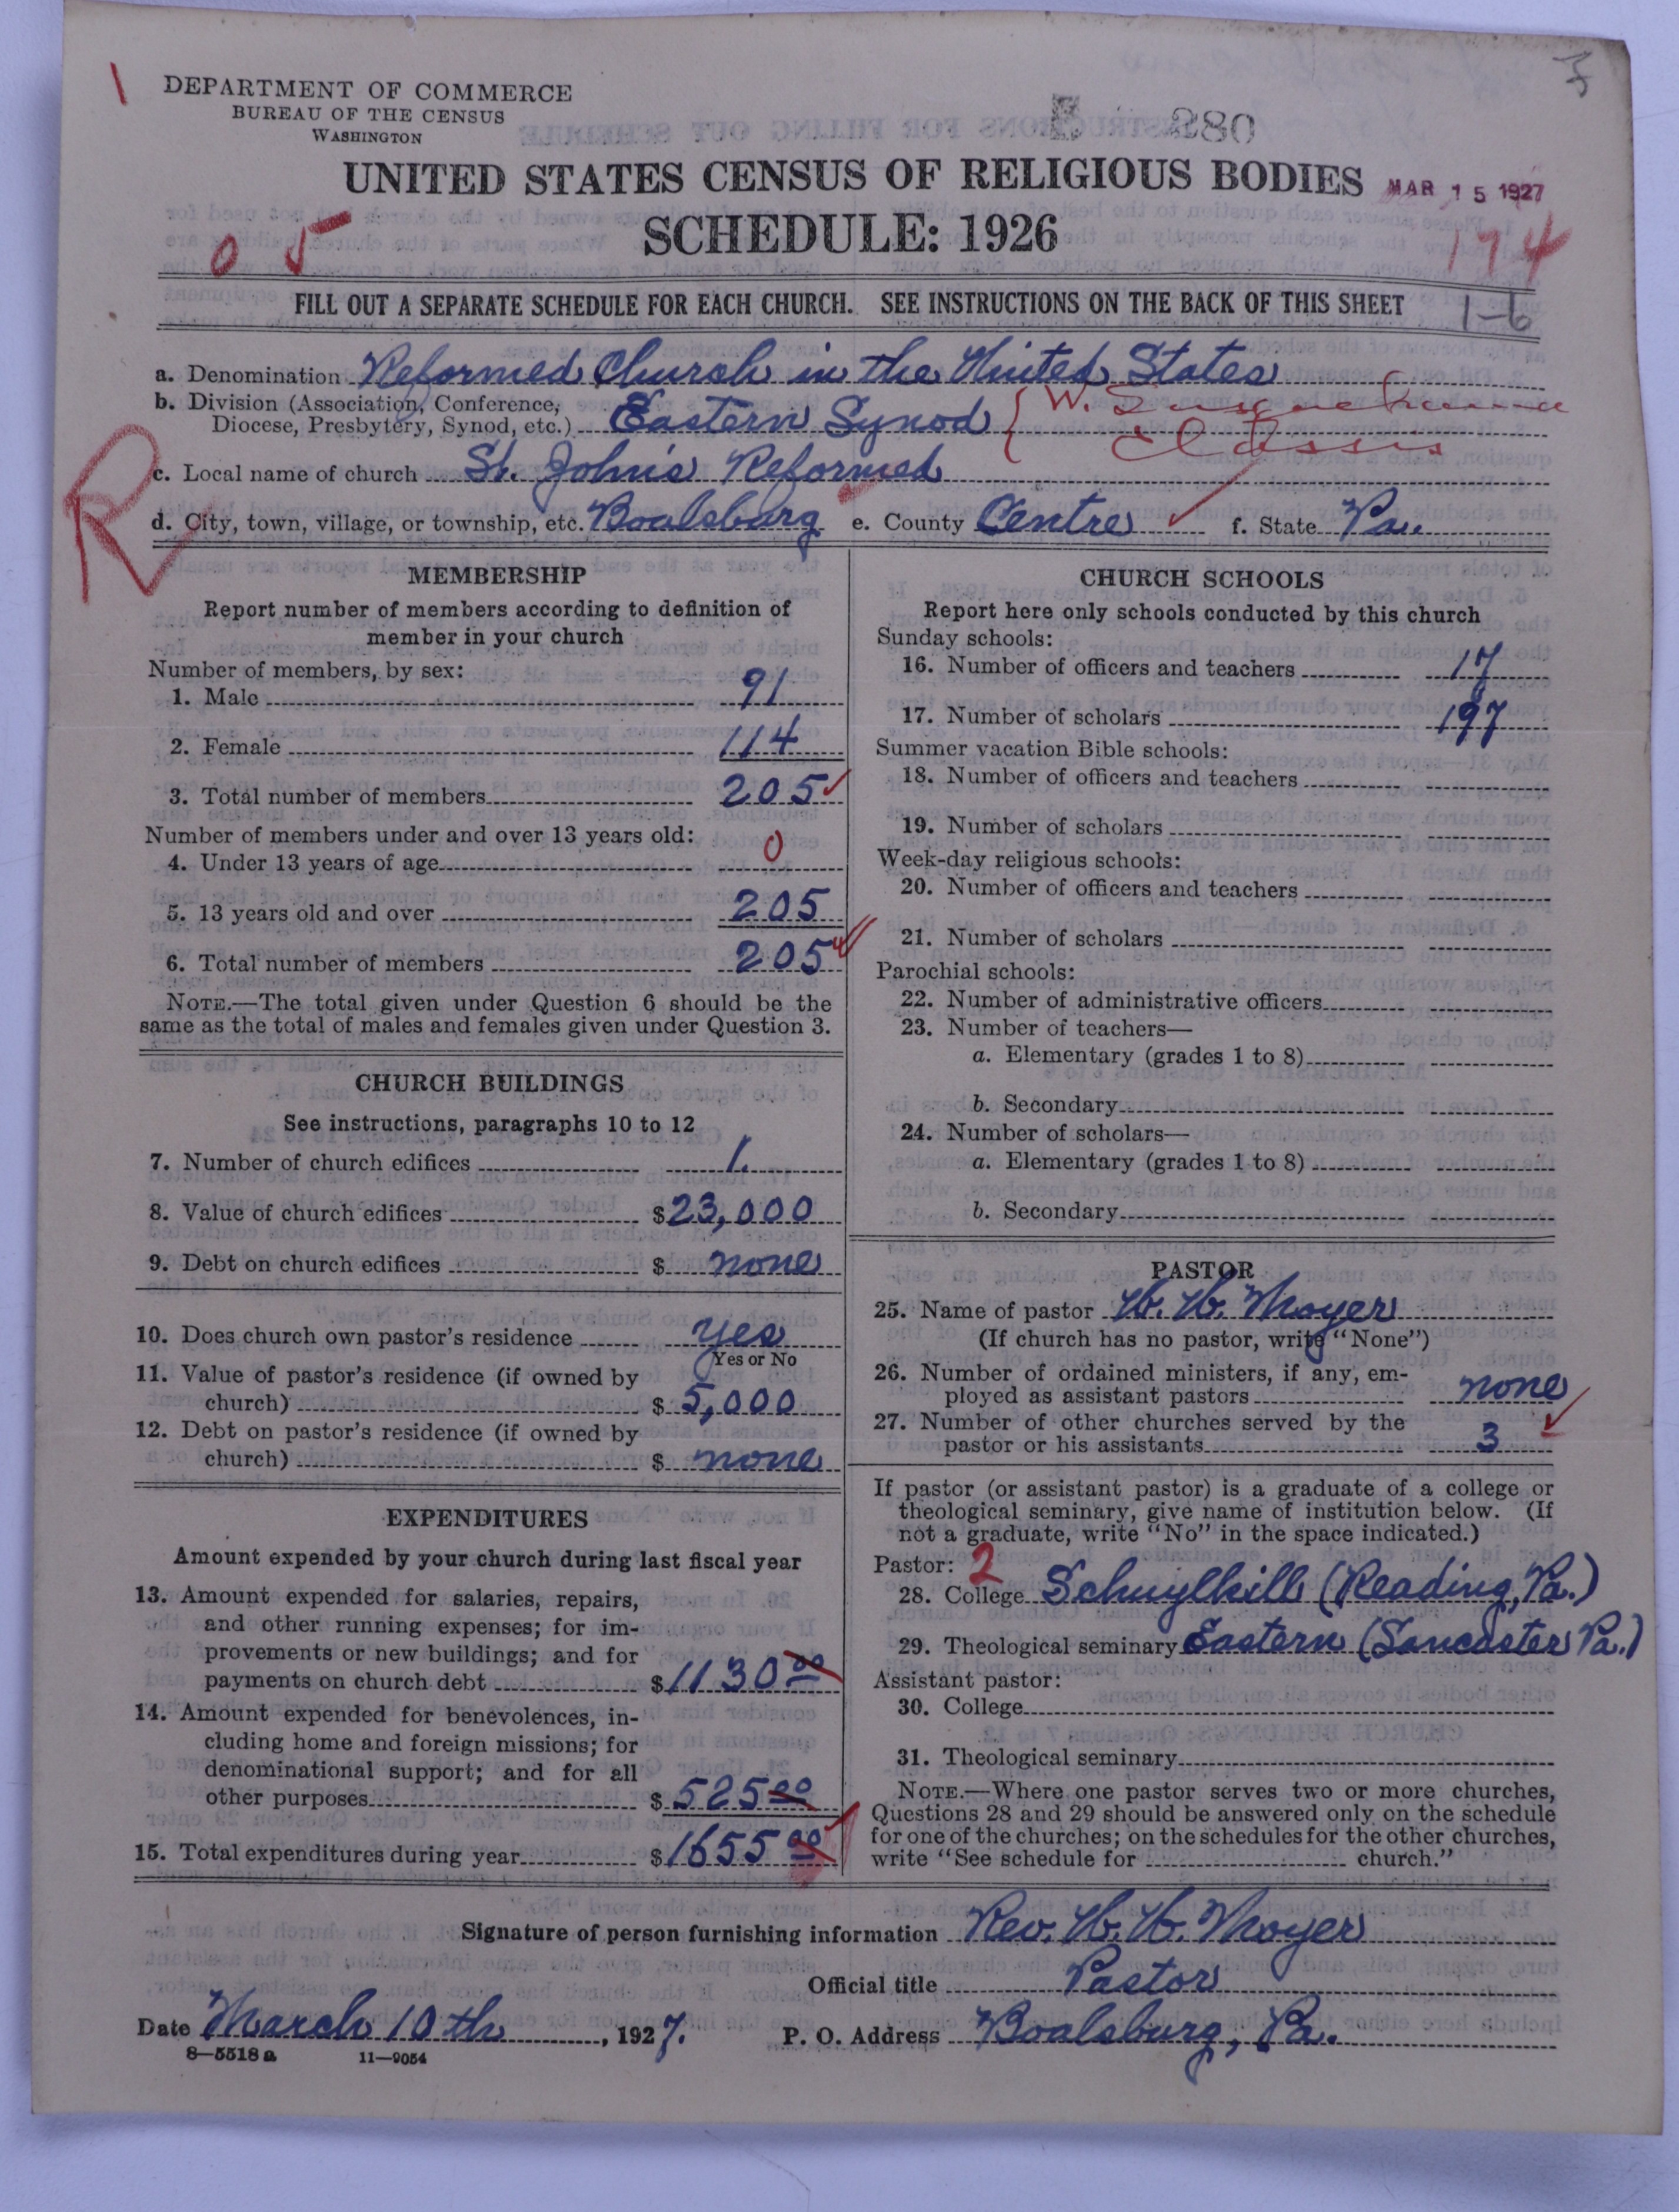 DEPARTMENT OF COMMERCE
BUREAU OF THE CENSUS
WASHINGTON
280
UNITED STATES CENSUS OF RELIGIOUS BODIES
MAR 15 1927
SCHEDULE: 1926
0 5
174
FILL OUT A SEPARATE SCHEDULE FOR EACH CHURCH. SEE INSTRUCTIONS ON THE BACK OF THIS SHEET
1-6
a. Denomination Reformed Church in the United States
b. Division (Association, Conference, Diocese, Presbytery, Synod, etc.) Eastern Synod { W. Susquehanna Classis
c. Local name of church St. John's Reformed
R
d. City, town, village, or township, etc. Boalsburg e. County Centre f. State Pa.
MEMBERSHIP
Report number of members according to definition of
member in your church
Number of members, by sex:
1. Male 91
2. Female 114
3. Total number of members 205
Number of members under and over 13 years old:
4. Under 13 years of age 0
5. 13 years old and over 205
6. Total number of members 205
NOTE.—The total given under Question 6 should be the
same as the total of males and females given under Question 3.
CHURCH BUILDINGS
See instructions, paragraphs 10 to 12
7. Number of church edifices 1.
8. Value of church edifices $23,000
9. Debt on church edifices $ none
10. Does church own pastor's residence yes
Yes or No
11. Value of pastor's residence (if owned by
church) $ 5,000
12. Debt on pastor's residence (if owned by
church) $ none
EXPENDITURES
Amount expended by your church during last fiscal year
13. Amount expended for salaries, repairs,
and other running expenses; for im-
provements or new buildings; and for
payments on church debt $1130 00
14. Amount expended for benevolences, in-
cluding home and foreign missions; for
denominational support; and for all
other purposes $525 00
15. Total expenditures during year $1655 00
CHURCH SCHOOLS
Report here only schools conducted by this church
Sunday schools:
16. Number of officers and teachers 17
17. Number of scholars 197
Summer vacation Bible schools:
18. Number of officers and teachers
19. Number of scholars
Week-day religious schools:
20. Number of officers and teachers
21. Number of scholars
Parochial schools:
22. Number of administrative officers
23. Number of teachers—
a. Elementary (grades 1 to 8)
b. Secondary
24. Number of scholars—
a. Elementary (grades 1 to 8)
b. Secondary
PASTOR
25. Name of pastor W. W. Moyer
(If church has no pastor, write "None")
26. Number of ordained ministers, if any, em-
ployed as assistant pastors none
27. Number of other churches served by the
pastor or his assistants 3
If pastor (or assistant pastor) is a graduate of a college or
theological seminary, give name of institution below. (If
not a graduate, write "No" in the space indicated.)
Pastor: 2
28. College Schuylkill (Reading, Pa.)
29. Theological seminary Eastern (Lancaster Pa.)
Assistant pastor:
30. College
31. Theological seminary
NOTE.—Where one pastor serves two or more churches,
Questions 28 and 29 should be answered only on the schedule
for one of the churches; on the schedules for the other churches,
write "See schedule for church."
Signature of person furnishing information Rev. W. W. Moyer
Official title Pastor
Date March 10th, 1927. P. O. Address Boalsburg, Pa.
8—5518a 11—9054